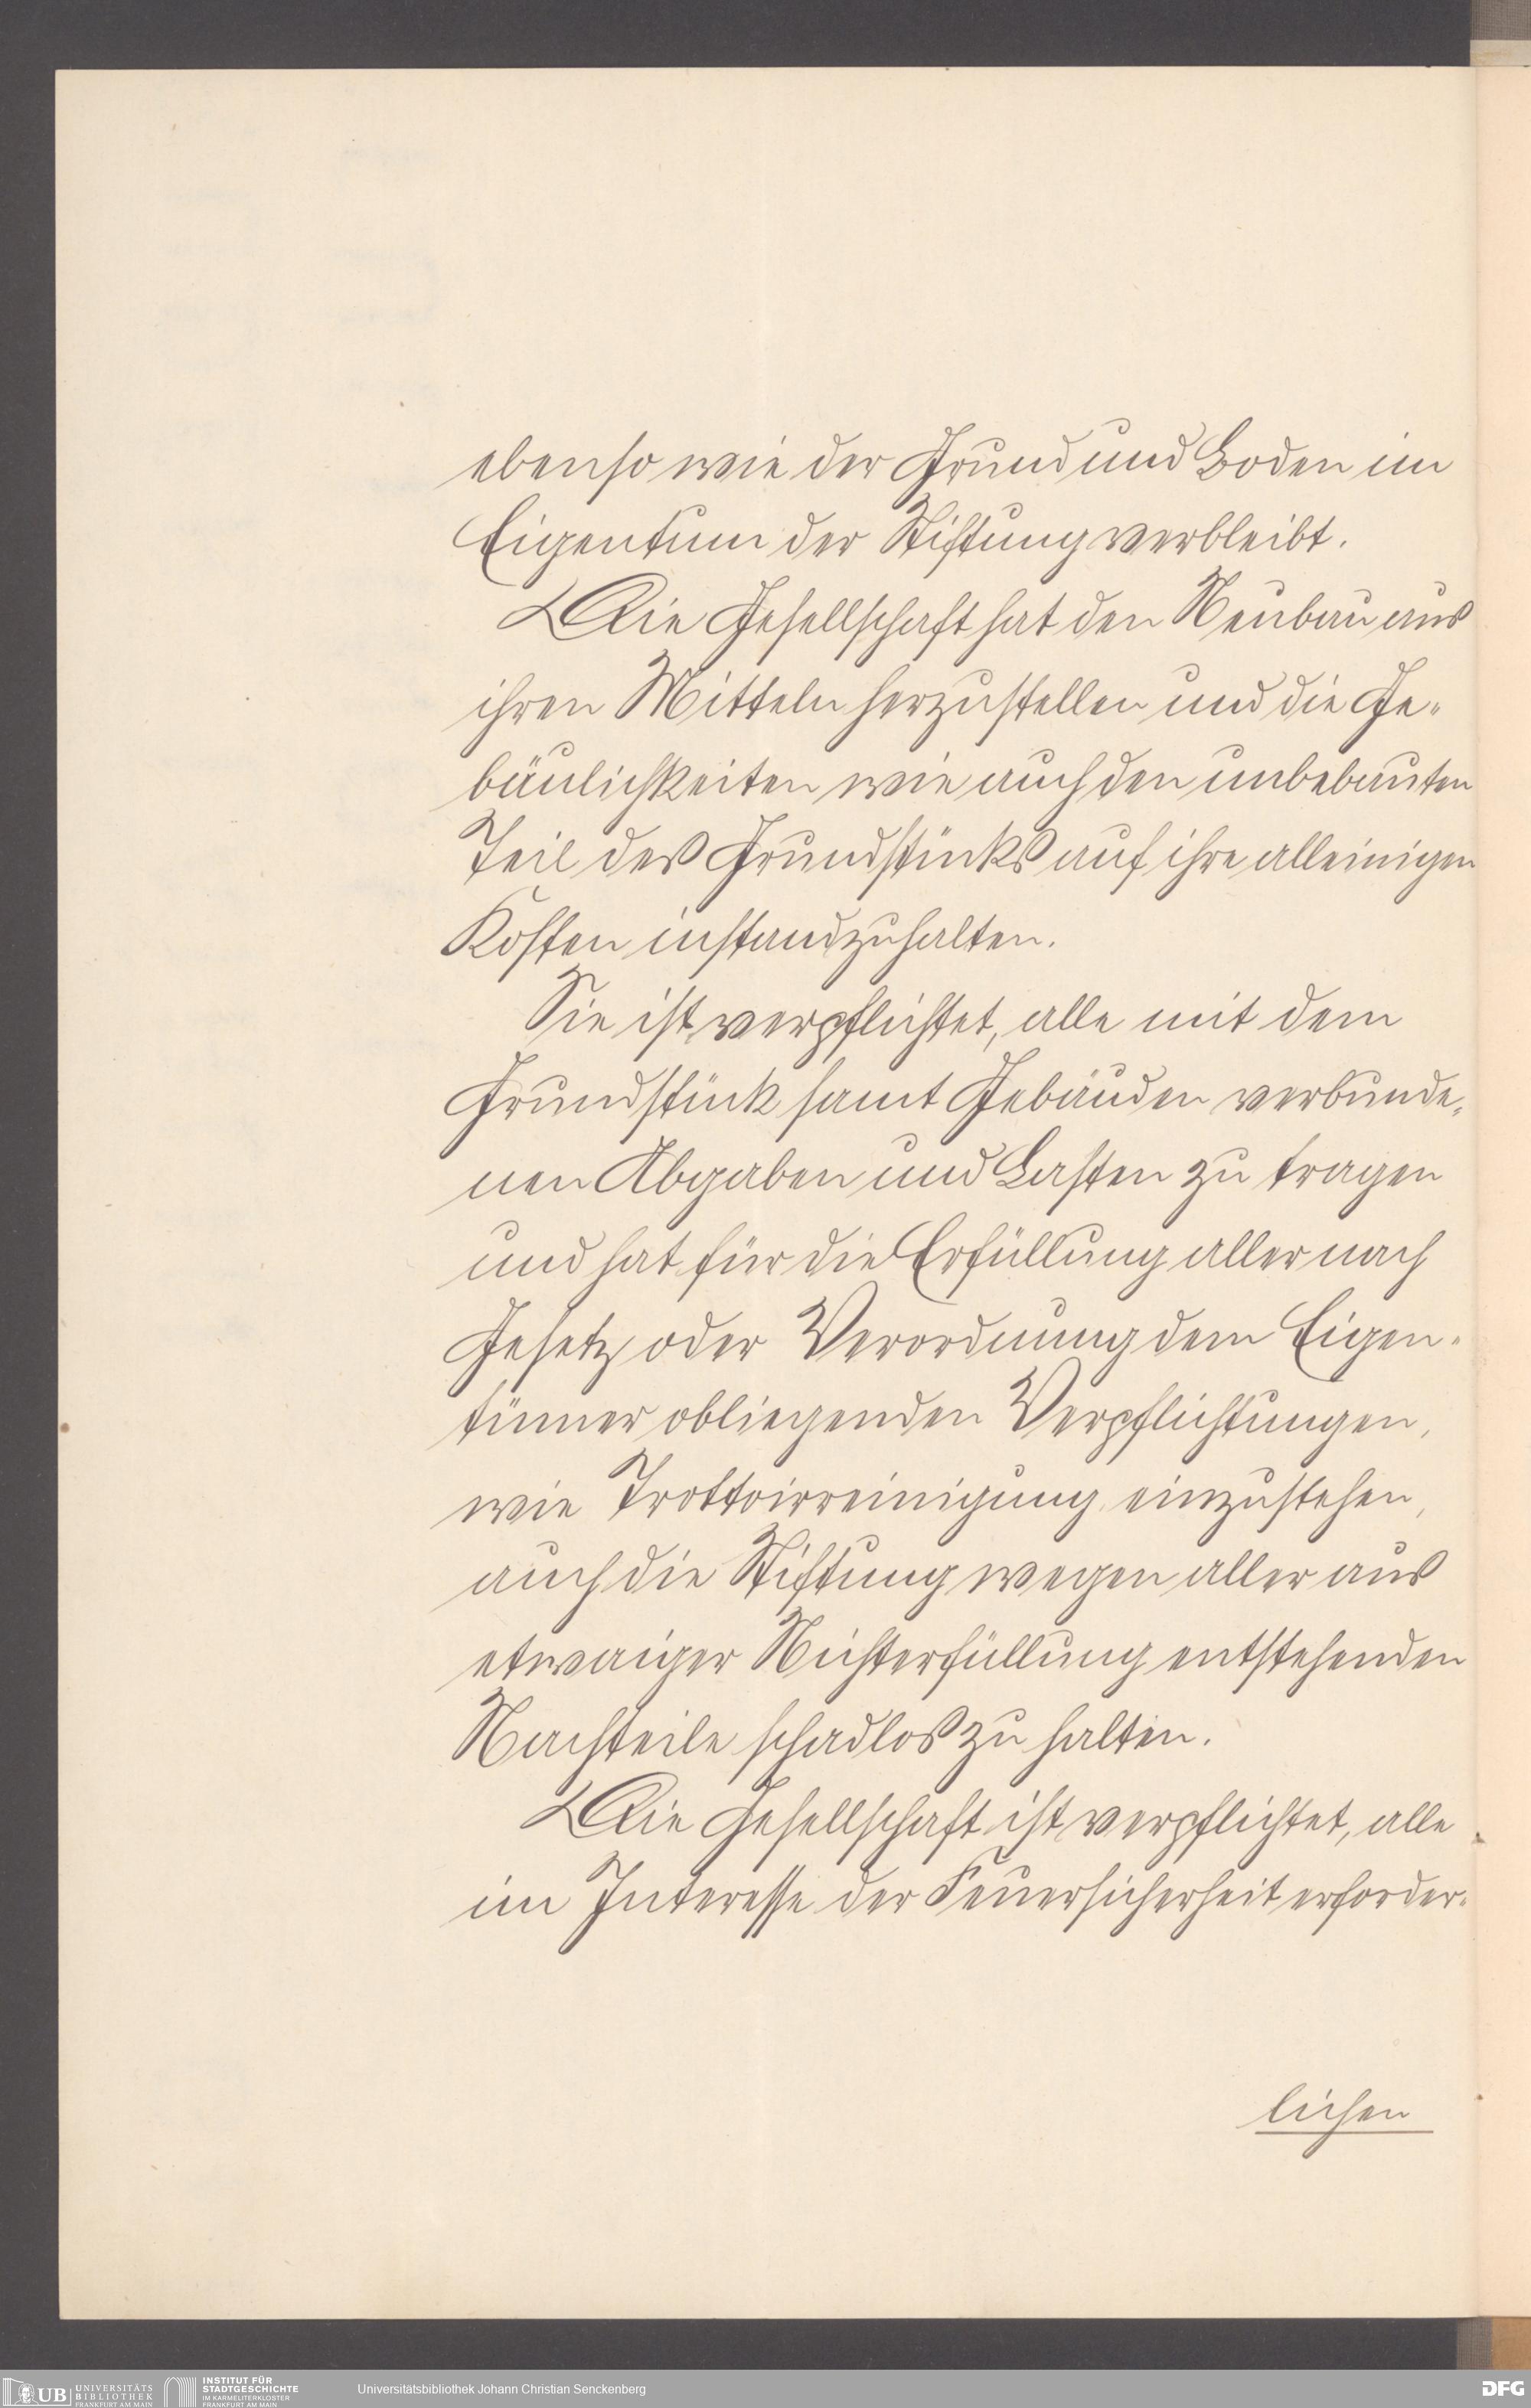 ebenso wie der Grund und Boden im
Eigentum der Stiftung verbleibt.
Die Gesellschaft hat den Neubau aus
ihren Mitteln herzustellen und die Ge-
bäulichkeiten wie auch den unbebauten
Teil des Grundstücks auf ihre alleinigen
Kosten instandzuhalten.
Sie ist verpflichtet, alle mit dem
Grundstück samt Gebäuden verbunde-
nen Abgaben und Lasten zu tragen
und hat für die Erfüllung aller nach
Gesetz oder Verordnung dem Eigen-
tümer obliegenden Verpflichtungen,
wie Trottoirreinigung einzustehen,
auch die Stiftung wegen aller aus
etwaiger Nichterfüllung entstehenden
Nachteile schadlos zu halten.
Die Gesellschaft ist verpflichtet, alle
im Interesse der Feuersicherheit erforder-
lichen
UB UNIVERSITÄTS BIBLIOTHEK FRANKFURT AM MAIN
INSTITUT FÜR STADTGESCHICHTE IM KARMELITERKLOSTER FRANKFURT AM MAIN
Universitätsbibliothek Johann Christian Senckenberg
DFG